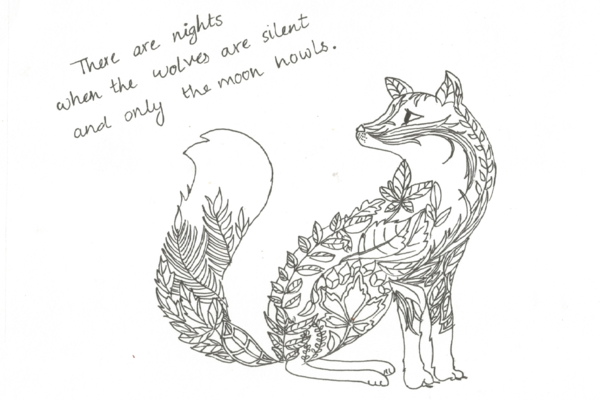 There are nights
when the wolves are silent
and only the moon howls.